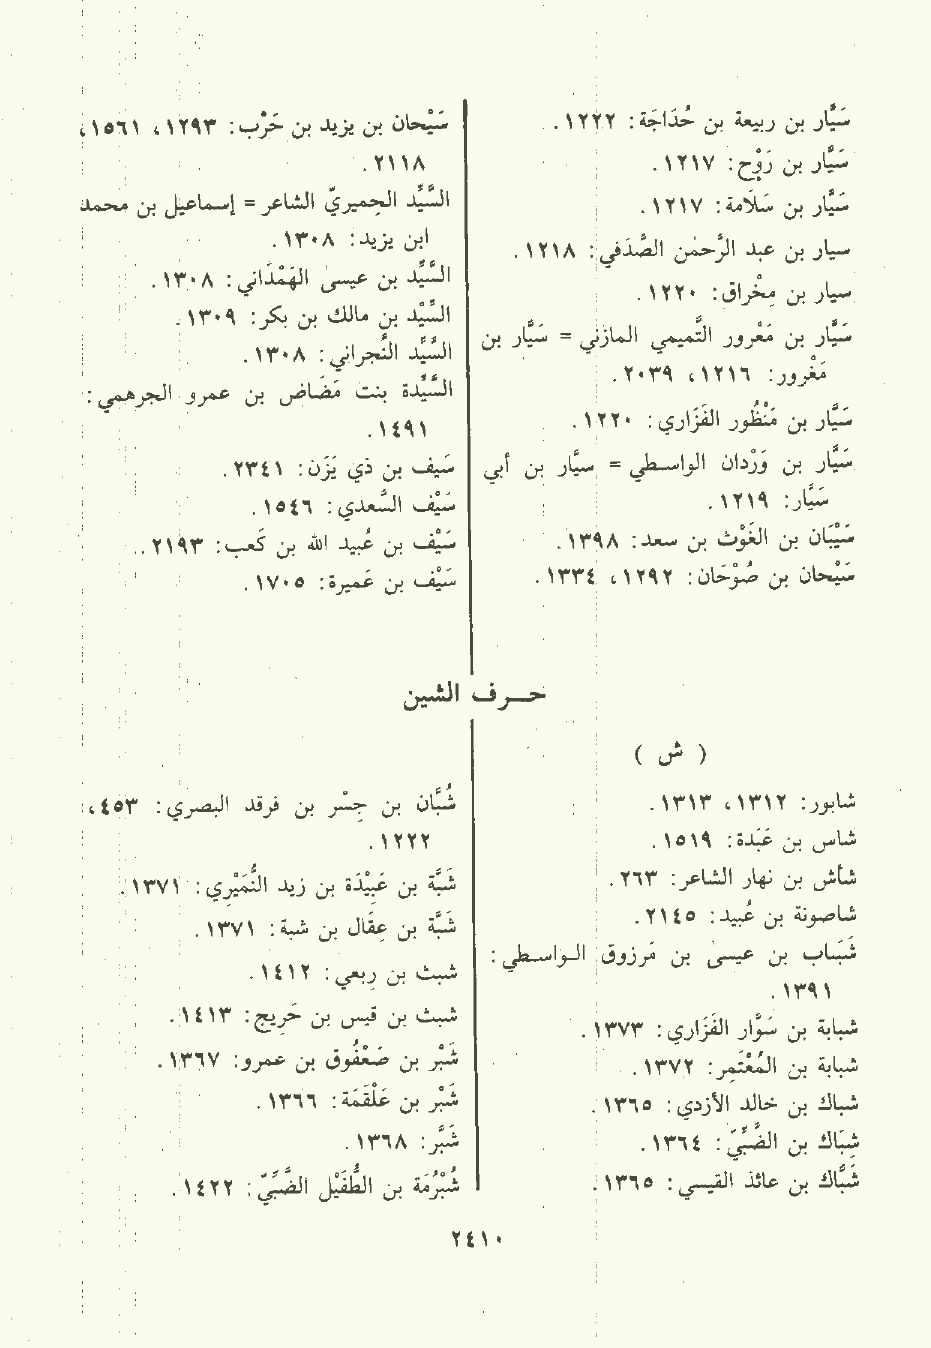 سَيَّار بن ربيعة بن حُدَاجَة: ١٢٢٢.
سَيَّار بن رَوْح: ١٢١٧.
سَيَّار بن سَلَامة: ١٢١٧.
سيار بن عبد الرَّحمٰن الصَّدَفي: ١٢١٨.
سيار بن مِخْراق: ١٢٢٠.
سَيَّار بن مَعْرور التَّميمي المازني = سَيَّار بن
مَغْرور: ١٢١٦، ٢٠٣٩.
سَيَّار بن مَنْظُور الفَزَاري: ١٢٢٠.
سَيَّار بن وَرْدان الواسطي = سيَّار بن أبي
سَيَّار: ١٢١٩.
سَيْبَان بن الغَوْث بن سعد: ١٣٩٨.
سَيْحان بن صُوْحَان: ١٢٩٢، ١٣٣٤.
سَيْحان بن يزيد بن حَرْب: ١٢٩٣، ١٥٦١،
٢١١٨.
السَّيِّد الحِميريّ الشاعر = إسماعيل بن محمد
ابن يزيد: ١٣٠٨.
السَّيِّد بن عيسىٰ الهَمْدَاني: ١٣٠٨.
السِّيْد بن مالك بن بكر: ١٣٠٩.
السَّيِّد النَّجراني: ١٣٠٨.
السَّيِّدة بنت مَضَاض بن عمرو الجرهمي:
١٤٩١.
سَيف بن ذي يَزَن: ٢٣٤١.
سَيْف السَّعدي: ١٥٤٦.
سَيْف بن عُبيد الله بن كَعب: ٢١٩٣.
سَيْف بن عَميرة: ١٧٠٥.
حـــرف الشين
( ش )
شابور: ١٣١٢، ١٣١٣.
شاس بن عَبَدة: ١٥١٩.
شأش بن نهار الشاعر: ٢٦٣.
شاصونة بن عُبيد: ٢١٤٥.
شَبَاب بن عيسىٰ بن مَرزوق الواسطي:
١٣٩١.
شبابة بن سَوَّار الفَزَاري: ١٣٧٣.
شبابة بن المُعْتَمِر: ١٣٧٢.
شباك بن خالد الأزدي: ١٣٦٥.
شِبَاك بن الضَّبِّيّ: ١٣٦٤.
شَبَّاك بن عائذ القيسي: ١٣٦٥.
شُبَّان بن جِسْر بن فرقد البصري: ٤٥٣،
١٢٢٢.
شَبَّة بن عَبِيْدَة بن زيد النُّمَيْرِي: ١٣٧١.
شَبَّة بن عِقَال بن شبة: ١٣٧١.
شبث بن رِبعي: ١٤١٢.
شبث بن قيس بن حَرِيج: ١٤١٣.
شَبْر بن صَعْفُوق بن عمرو: ١٣٦٧.
شَبْر بن عَلْقَمَة: ١٣٦٦.
شَبَّر: ١٣٦٨.
شُبْرُمَة بن الطُّفَيْل الضَّبِّيّ: ١٤٢٢.
٢٤١٠